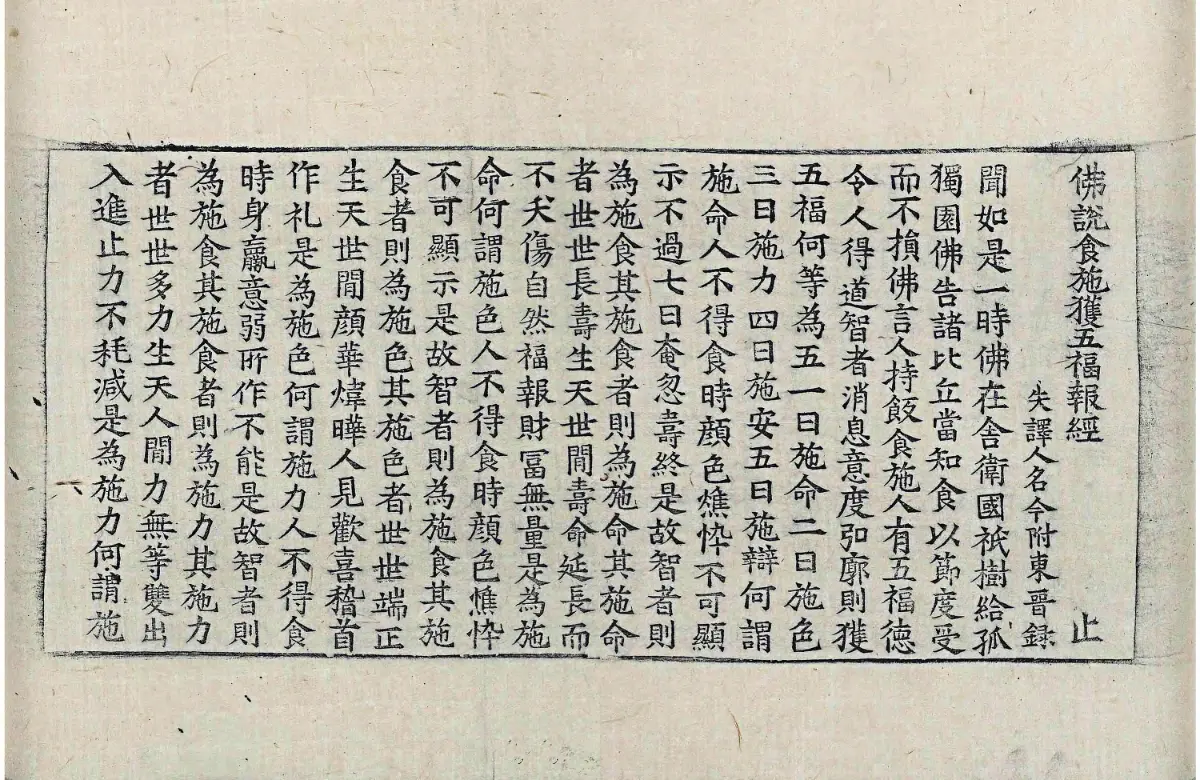 佛說食施獲五福報經 止
失譯人名今附東晋録
聞如是一時佛在舍衛國祇樹給孤
獨園佛告諸比丘當知食以節度受
而不損佛言人持飯食施人有五福德
令人得道智者消息意度弘廓則獲
五福何等為五一曰施命二曰施色
三曰施力四曰施安五曰施辯何謂
施命人不得食時顔色燋悴不可顯
示不過七日奄忽壽終是故智者則
為施食其施食者則為施命其施命
者世世長壽生天世間壽命延長而
不夭傷自然福報財冨無量是為施
命何謂施色人不得食時顔色憔悴
不可顯示是故智者則為施食其施
食者則為施色其施色者世世端正
生天世間顔華煒曄人見歡喜稽首
作礼是為施色何謂施力人不得食
時身羸意弱所作不能是故智者則
為施食其施食者則為施力其施力
者世世多力生天人間力無等雙出
入進止力不耗減是為施力何謂施